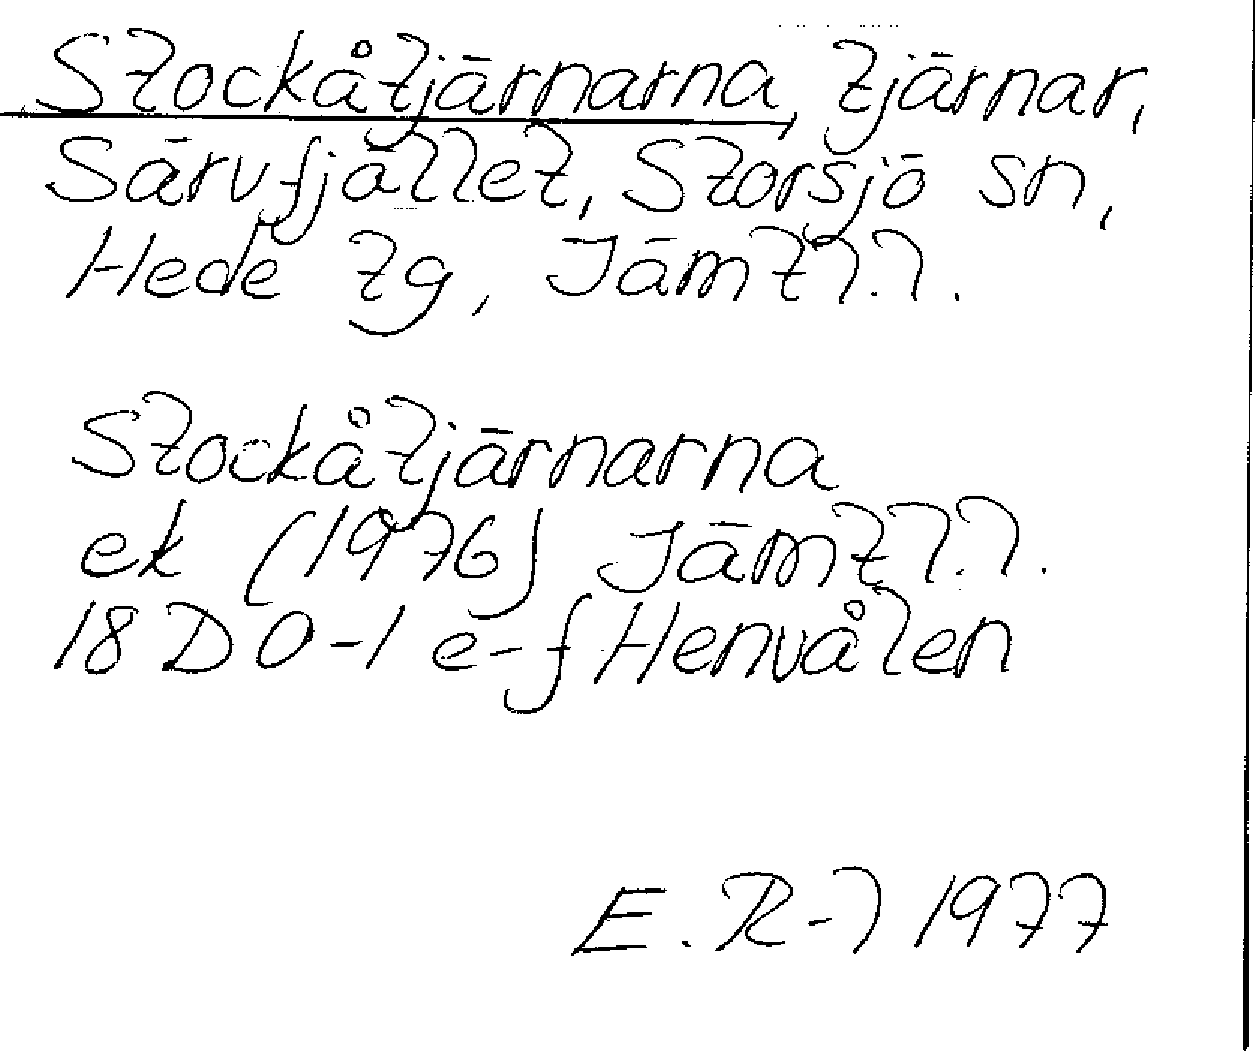 Stockåtjärnarna, tjärnar,
Särvfjället, Storsjö sn,
Hede tg, Jämtl.l.
Stockåtjärnarna
ek (1976) Jämtl.l.
18D0-1e-f Henvålen
E. R-l 1977